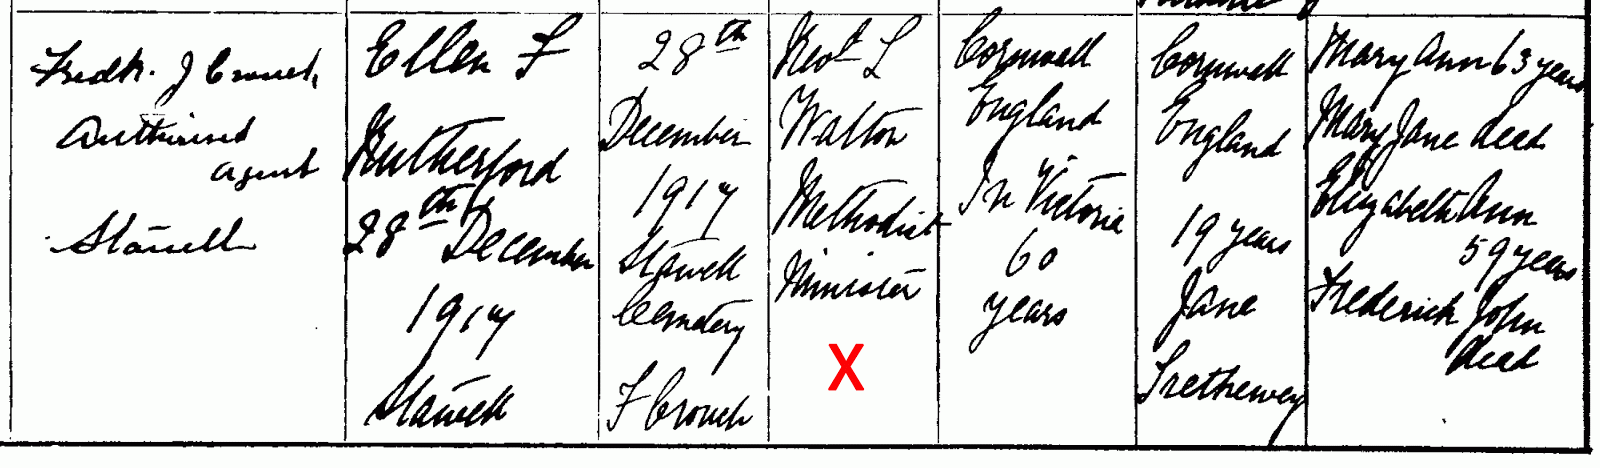 Fredk. J Crouch,
Authorised
agent
Stawell
Ellen F
Rutherford
28th December
1917
Stawell
28th
December
1917
Stawell
Cemetery
F Crouch
Revd L
Walton
Methodist
Minister
X
Cornwall
England
In Victoria
60
years
Cornwall
England
19 years
Jane
Trethewey
Mary Ann 63 years
Mary Jane dead
Elizabeth Ann
59 years
Frederick John
dead